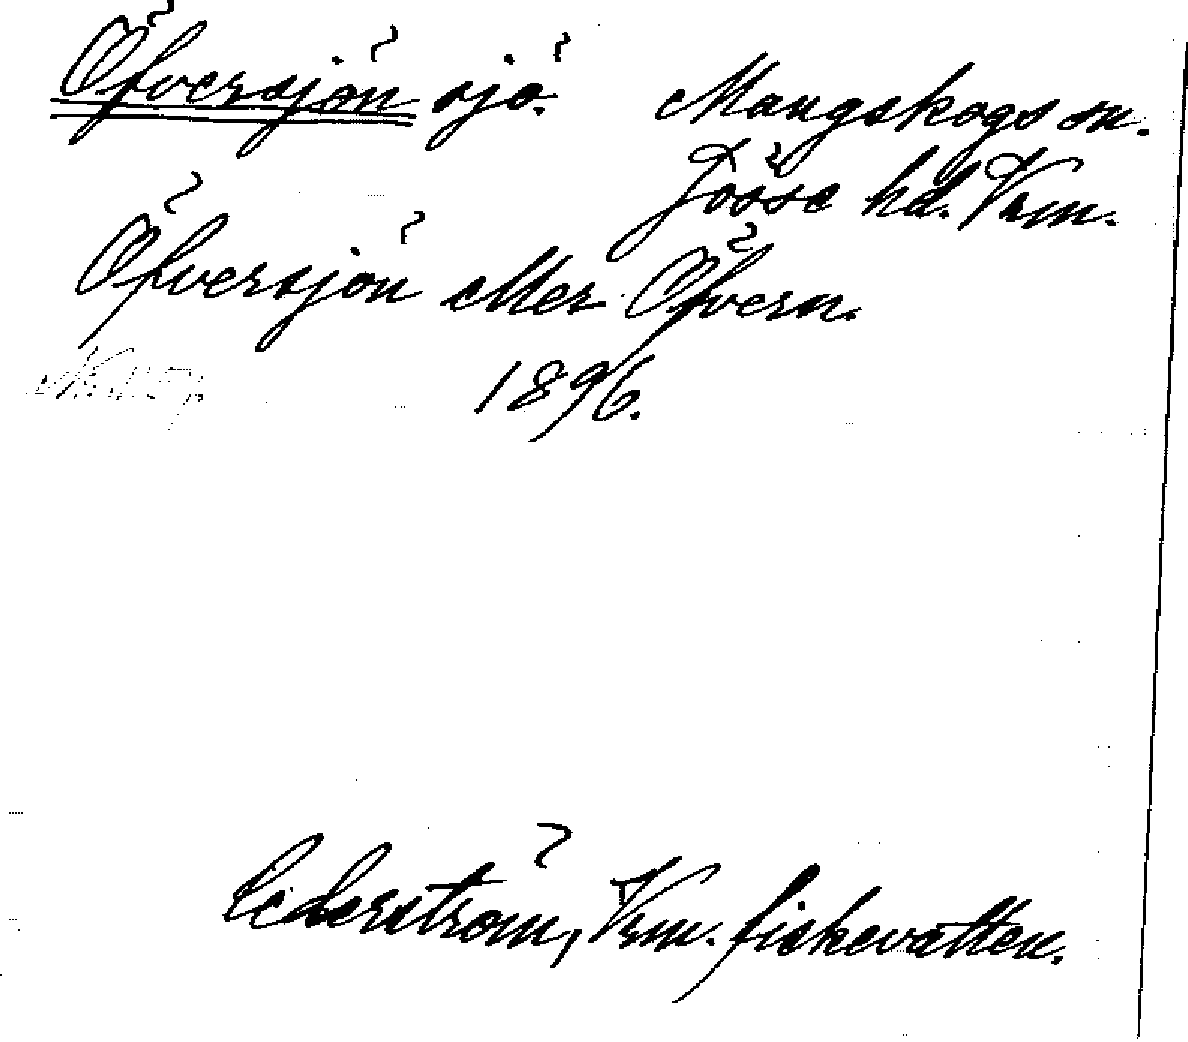 Öfversjön sjö. Mangskogs sn.
Jösse hd. Vrm.
Öfversjön eller Öfvern.
1896.
Cederström, Vrm. fiskevatten.